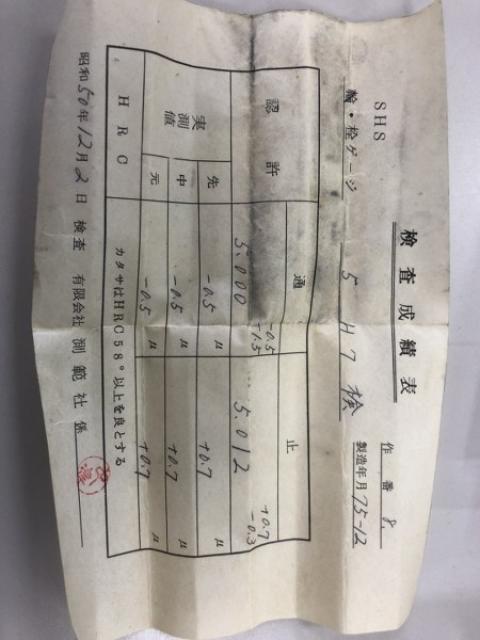 検査成績表
SHS
作番 8.
輪・栓ゲージ 5 H7 検 製造年月 75-12
通 止
認許 5.000 -0.5 -1.5 5.012 +0.7 -0.3
実測値 先 -0.5 μ +0.7 μ
中 -0.5 μ +0.7 μ
元 -0.5 μ +0.7 μ
HRC カタサはHRC58°以上を良とする
昭和50年12月2日 検査 有限会社 測範社 係